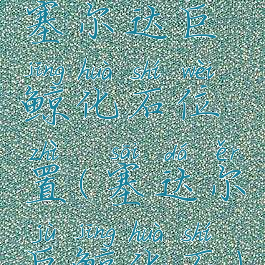 塞尔达巨
jīng huà shí wèi
鲸化石位
zhì sài dá ěr
置(塞达尔
jù jīng huà shí
巨鲸化石)